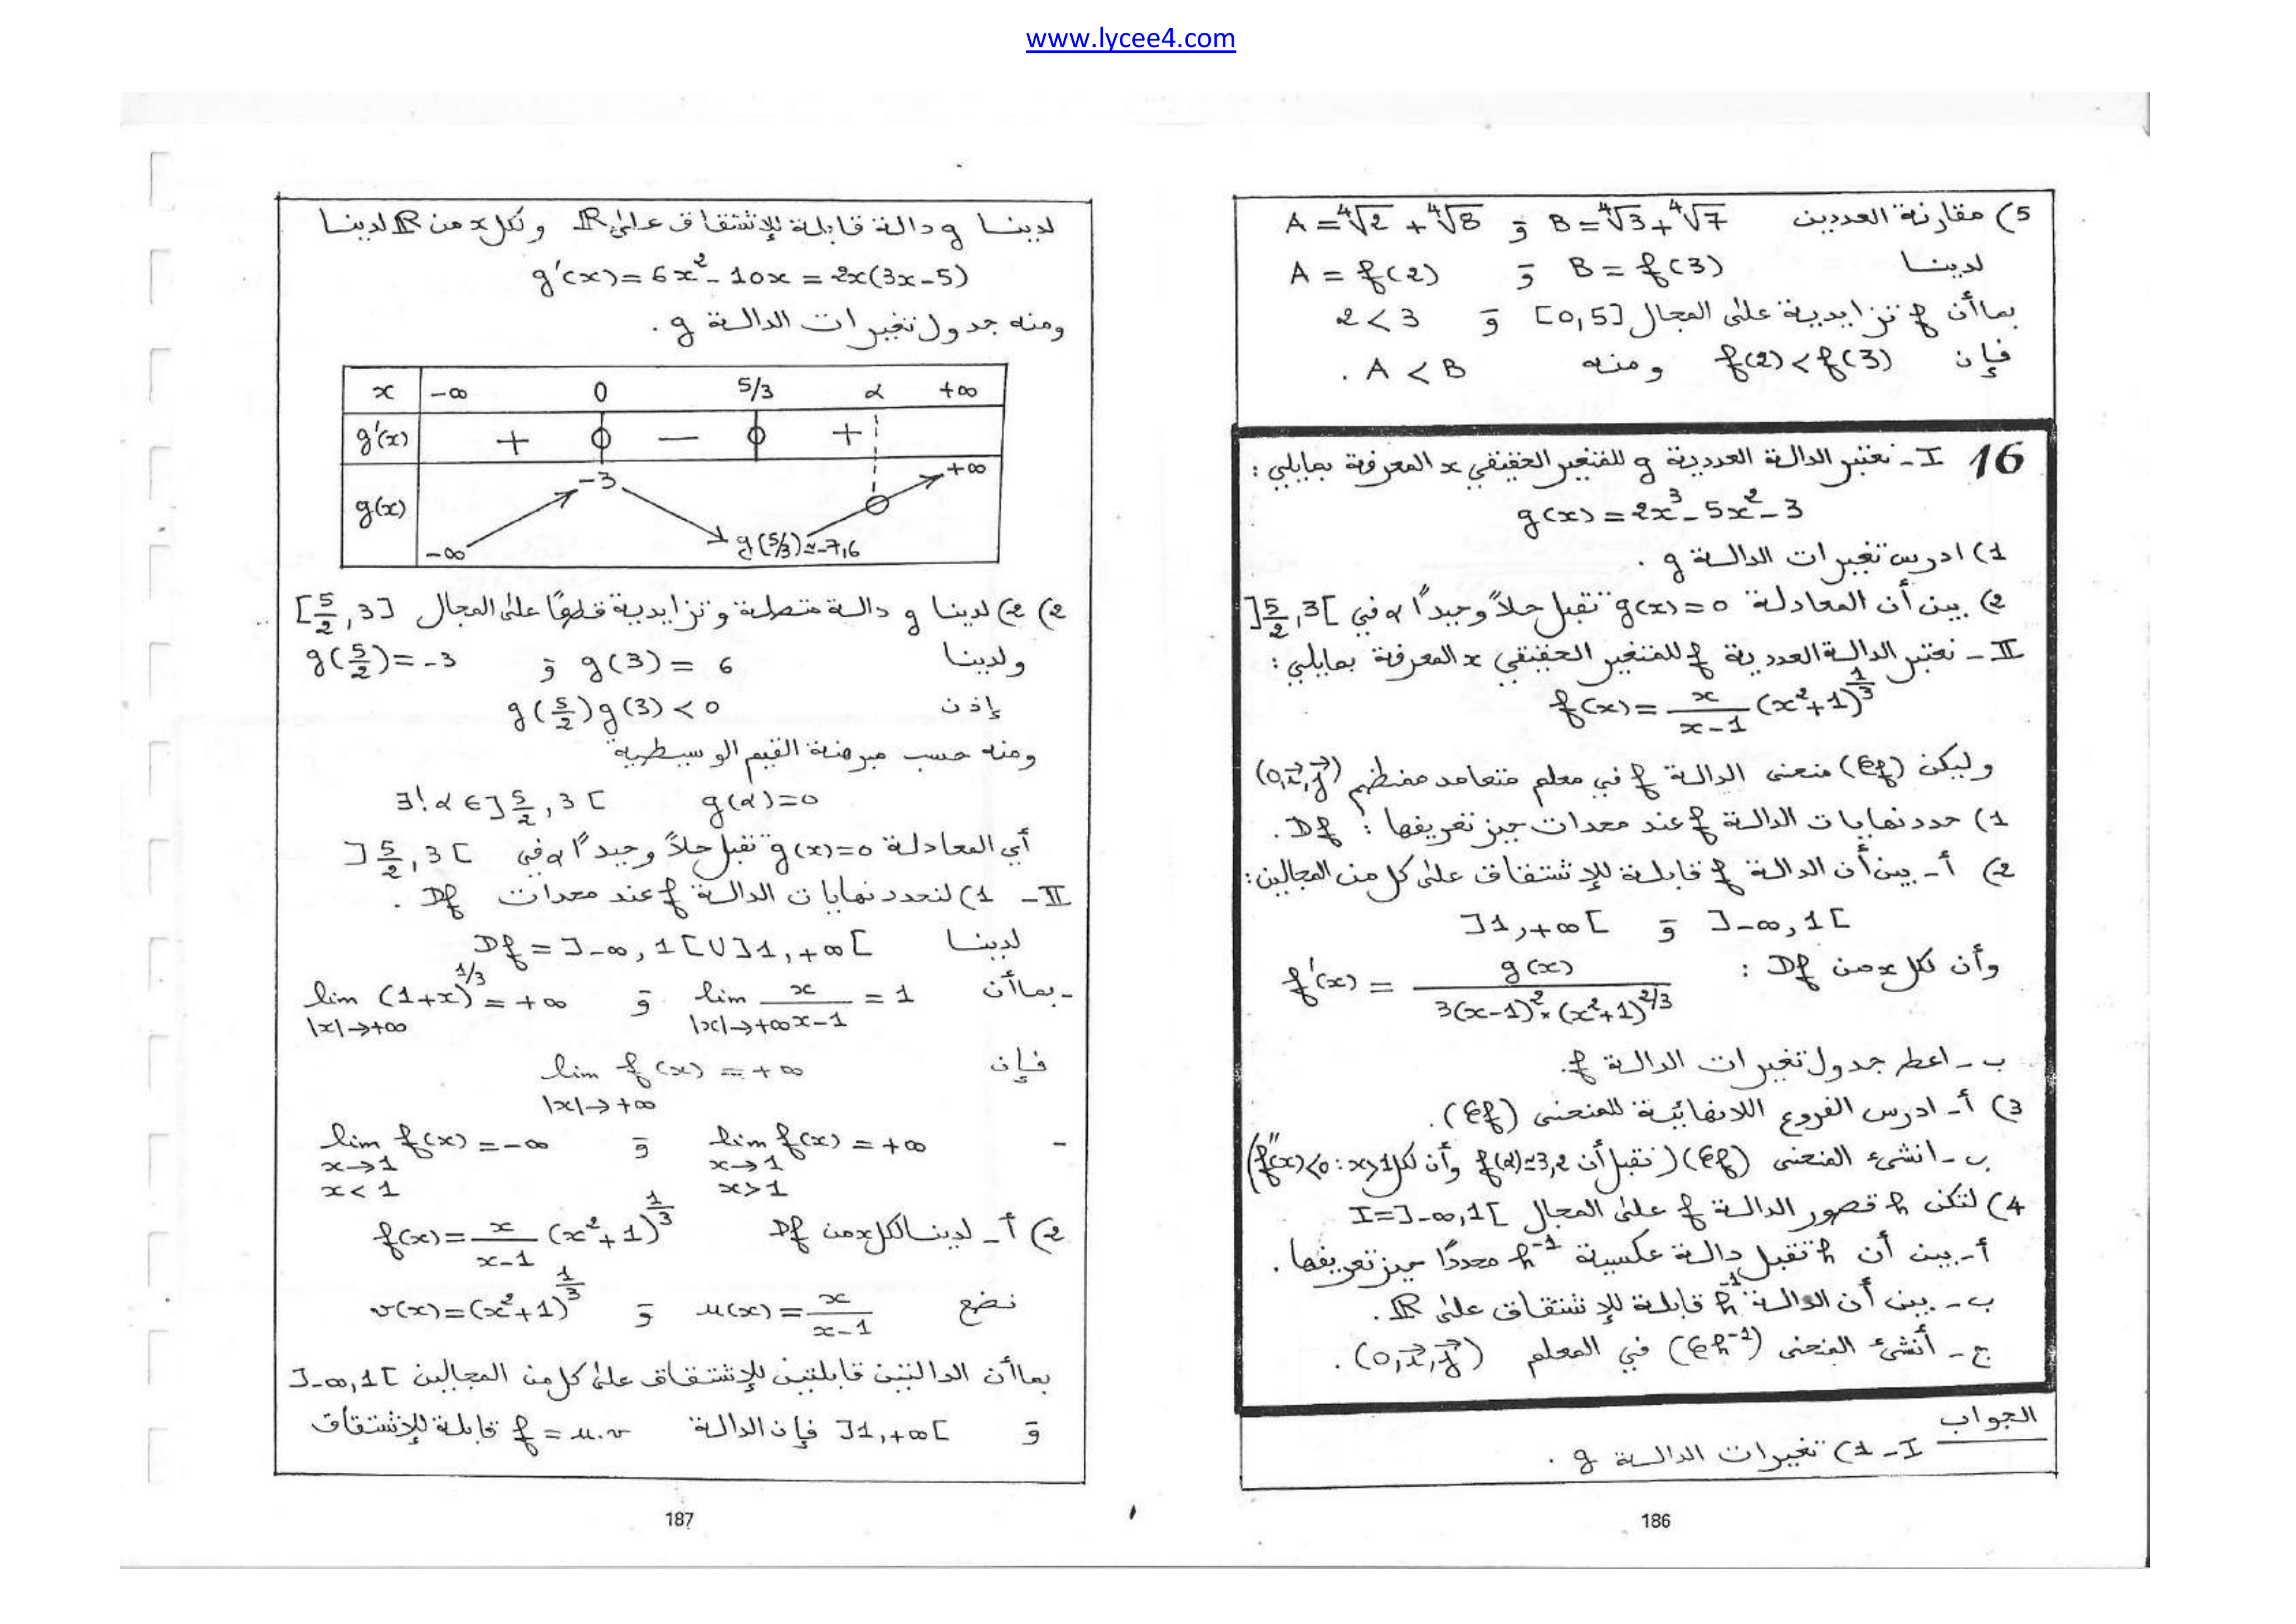 www.lycee4.com
5) مقارنة العددين B = ∜3 + ∜7 و A = ∜2 + ∜8
لدينا B = f(3) و A = f(2)
بما أن f تزايدية على المجال [0,5] و 2 < 3
فإن f(2) < f(3) ومنه A < B .
16 I - نعتبر الدالة العددية g للمتغير الحقيقي x المعرفة بمايلي :
g(x) = 2x³ - 5x² - 3
1) ادرس تغيرات الدالة g .
2) بين أن المعادلة g(x) = 0 تقبل حلاً وحيداً α في ]5/2 , 3[
II - نعتبر الدالة العددية f للمتغير الحقيقي x المعرفة بمايلي :
f(x) = x/(x-1) (x²+1)^(1/3)
وليكن (Cf) منحنى الدالة f في معلم متعامد ممنظم (O, i, j)
1) حدد نهايات الدالة f عند محدات حيز تعريفها : Df .
2) أ - بين أن الدالة f قابلة للإشتقاق على كل من المجالين :
]-∞, 1[ و ]1, +∞[
وأن لكل x من Df : f'(x) = g(x) / (3(x-1)² × (x²+1)^(2/3))
ب - اعط جدول تغيرات الدالة f.
3) أ - ادرس الفروع اللانهائية للمنحنى (Cf).
ب - انشىء المنحنى (Cf) (نقبل أن f(α) ≃ 3,2 وأن لكل x>1 : f"(x)<0)
4) لتكن h قصور الدالة f على المجال I = ]-∞, 1[
أ - بين أن h تقبل دالة عكسية h⁻¹ محدداً حيز تعريفها .
ب - بين أن الدالة h⁻¹ قابلة للإشتقاق على ℝ.
ج - أنشئ المنحنى (Ch⁻¹) في المعلم (O, i, j) .
الجواب
I - 1) تغيرات الدالة g .
186
لدينا g دالة قابلة للإشتقاق على ℝ ولكل x من ℝ لدينا
g'(x) = 6x² - 10x = 2x(3x-5)
ومنه جدول تغيرات الدالة g .
x -∞ 0 5/3 α +∞
g'(x) + 0 - 0 +
g(x) -∞ -3 g(5/3) ≃ -7,6 0 +∞
2) 2) لدينا g دالة متصلة وتزايدية قطعاً على المجال [5/2 , 3]
ولدينا g(3) = 6 و g(5/2) = -3
إذن g(5/2) g(3) < 0
ومنه حسب مبرهنة القيم الوسيطية
∃! α ∈ ]5/2 , 3[ g(α) = 0
أي المعادلة g(x) = 0 تقبل حلاً وحيداً α في ]5/2 , 3[
II - 1) لنحدد نهايات الدالة f عند محدات Df .
لدينا Df = ]-∞, 1[ U ]1, +∞[
- بما أن lim |x|→+∞ x/(x-1) = 1 و lim |x|→+∞ (1+x)^(1/3) = +∞
فإن lim |x|→+∞ f(x) = +∞
- lim x→1 x>1 f(x) = +∞ و lim x→1 x<1 f(x) = -∞
2) أ - لدينا لكل x من Df f(x) = x/(x-1) (x²+1)^(1/3)
نضع u(x) = x/(x-1) و v(x) = (x²+1)^(1/3)
بما أن الدالتين قابلتين للإشتقاق على كل من المجالين ]-∞, 1[
و ]1, +∞[ فإن الدالة f = u.v قابلة للإشتقاق
187